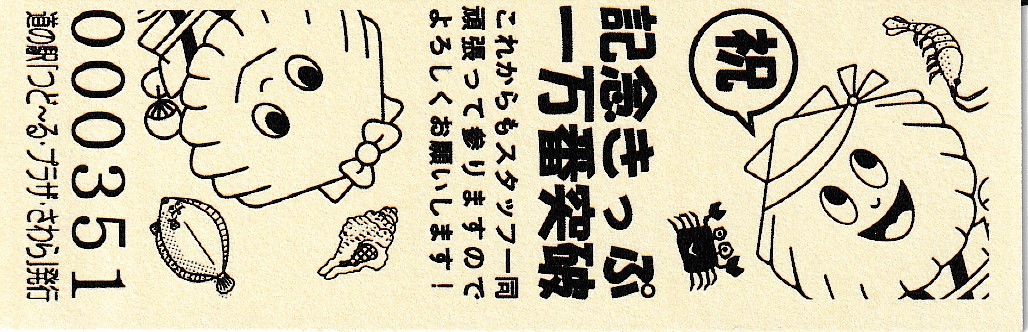 祝
記念きっぷ
一万番突破
これからもスタッフ一同
頑張って参りますので
よろしくお願いします!
000351
道の駅「つど～る・プラザ・さわら」発行